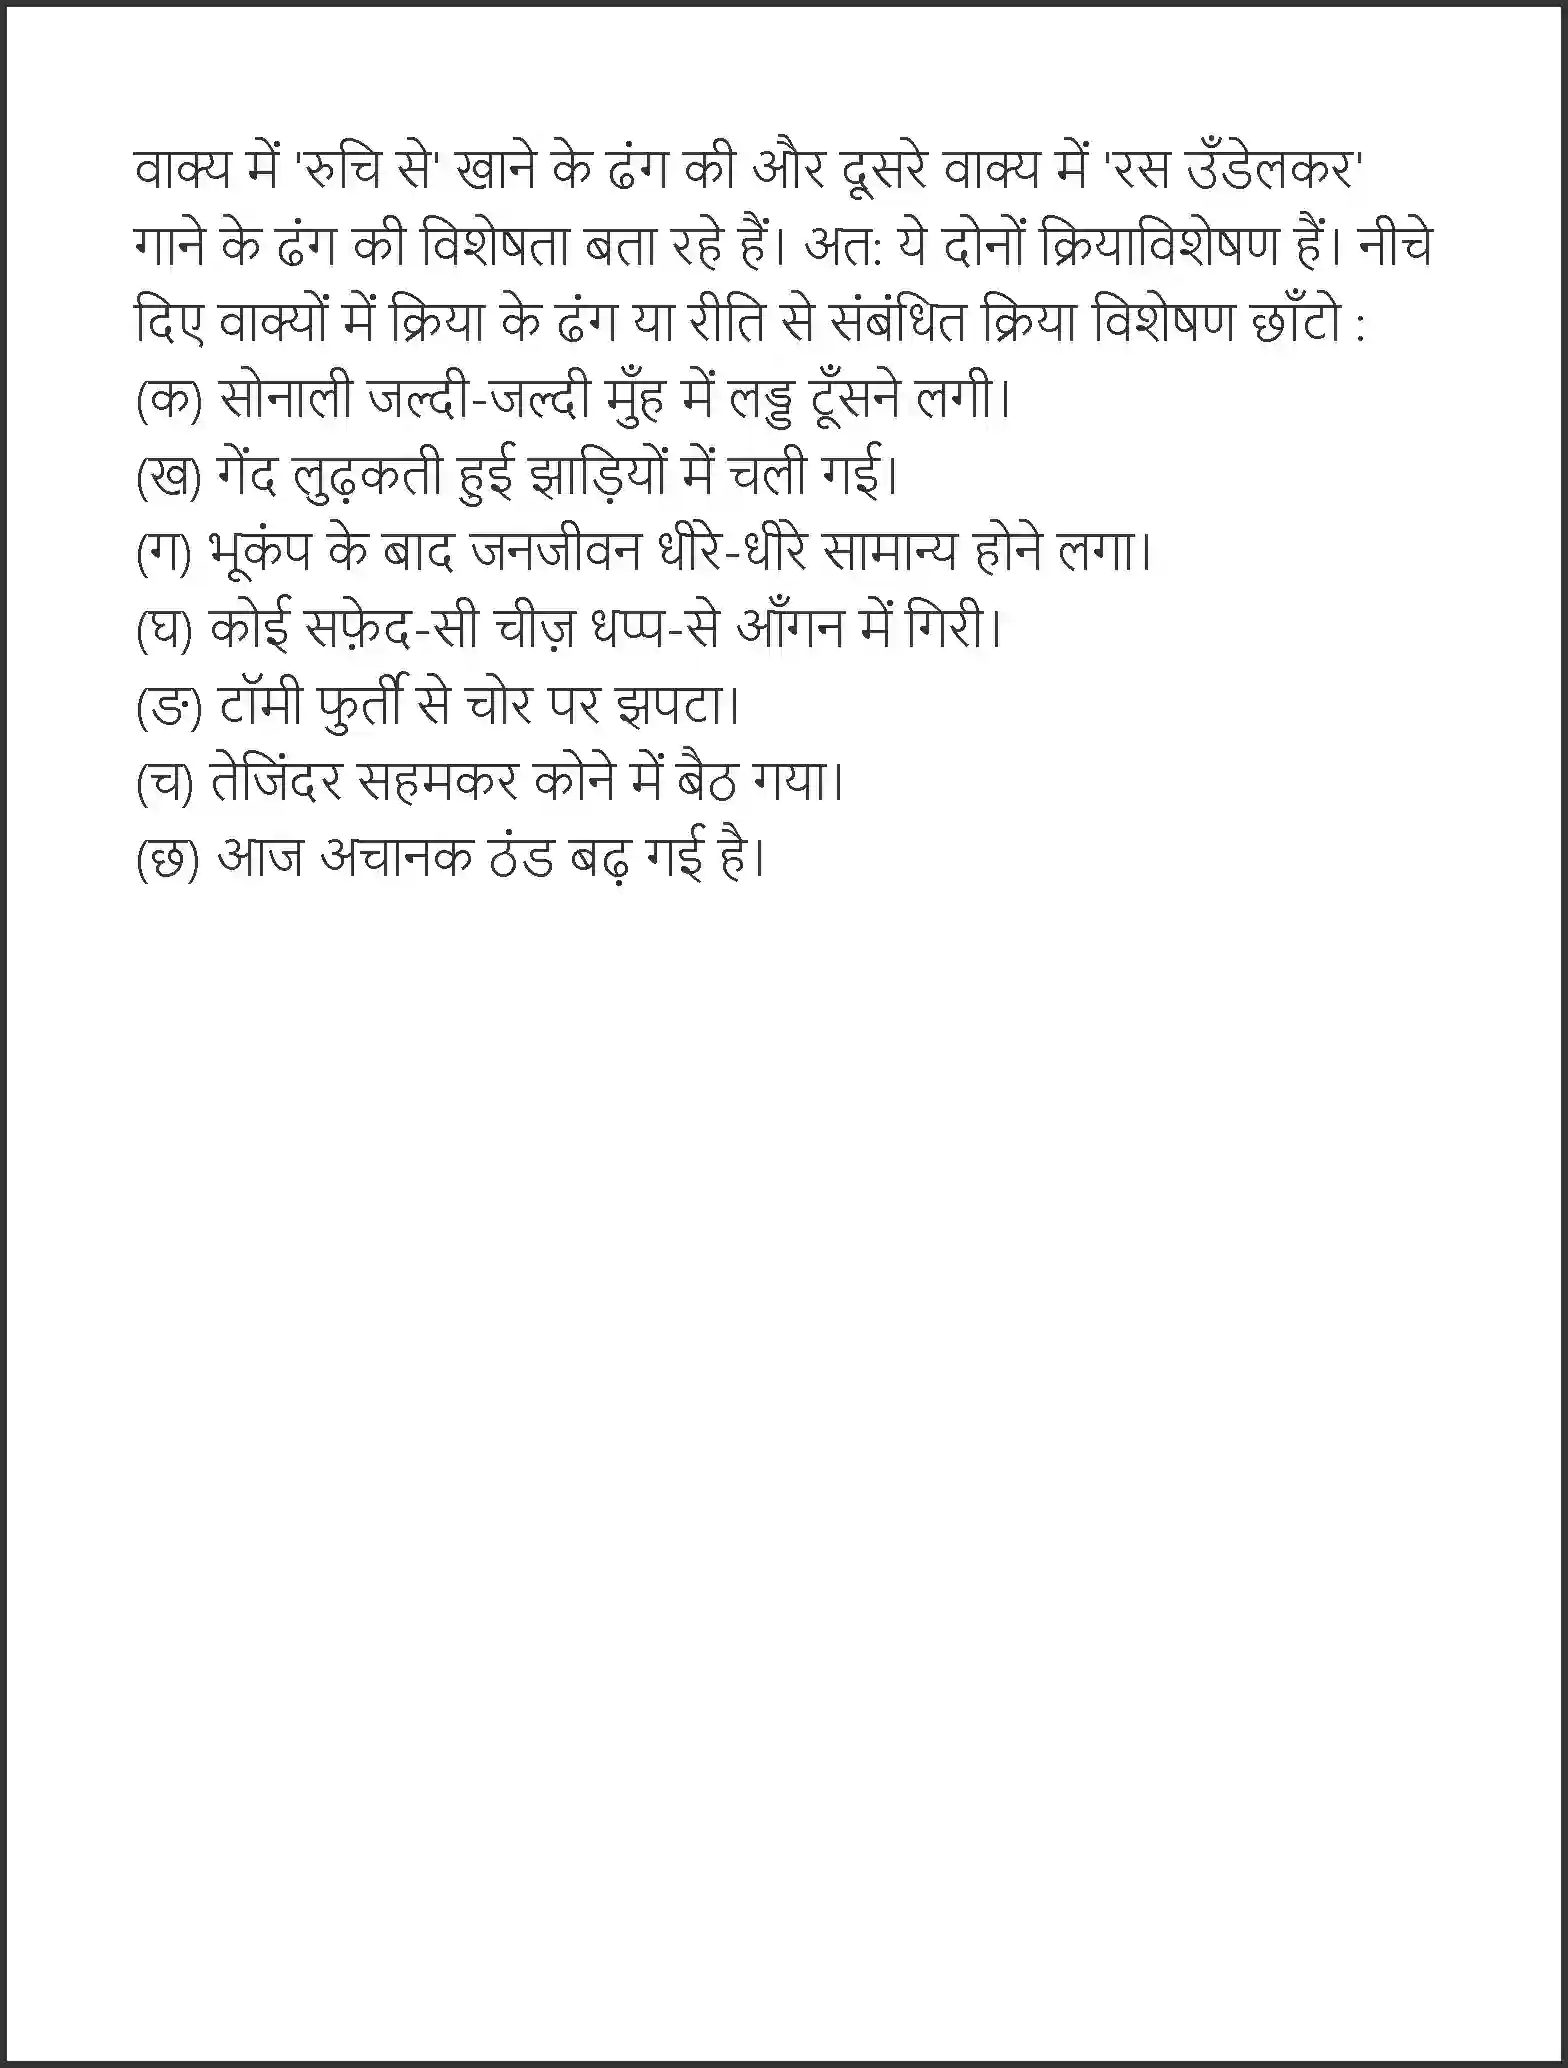 वाक्य में 'रुचि से' खाने के ढंग की और दूसरे वाक्य में 'रस उँडेलकर'
गाने के ढंग की विशेषता बता रहे हैं। अत: ये दोनों क्रियाविशेषण हैं। नीचे
दिए वाक्यों में क्रिया के ढंग या रीति से संबंधित क्रिया विशेषण छाँटो :
(क) सोनाली जल्दी-जल्दी मुँह में लड्ड टूँसने लगी।
(ख) गेंद लुढ़कती हुई झाड़ियों में चली गई।
(ग) भूकंप के बाद जनजीवन धीरे-धीरे सामान्य होने लगा।
(घ) कोई सफ़ेद-सी चीज़ धप्प-से आँगन में गिरी।
(ङ) टॉमी फुर्ती से चोर पर झपटा।
(च) तेजिंदर सहमकर कोने में बैठ गया।
(छ) आज अचानक ठंड बढ़ गई है।